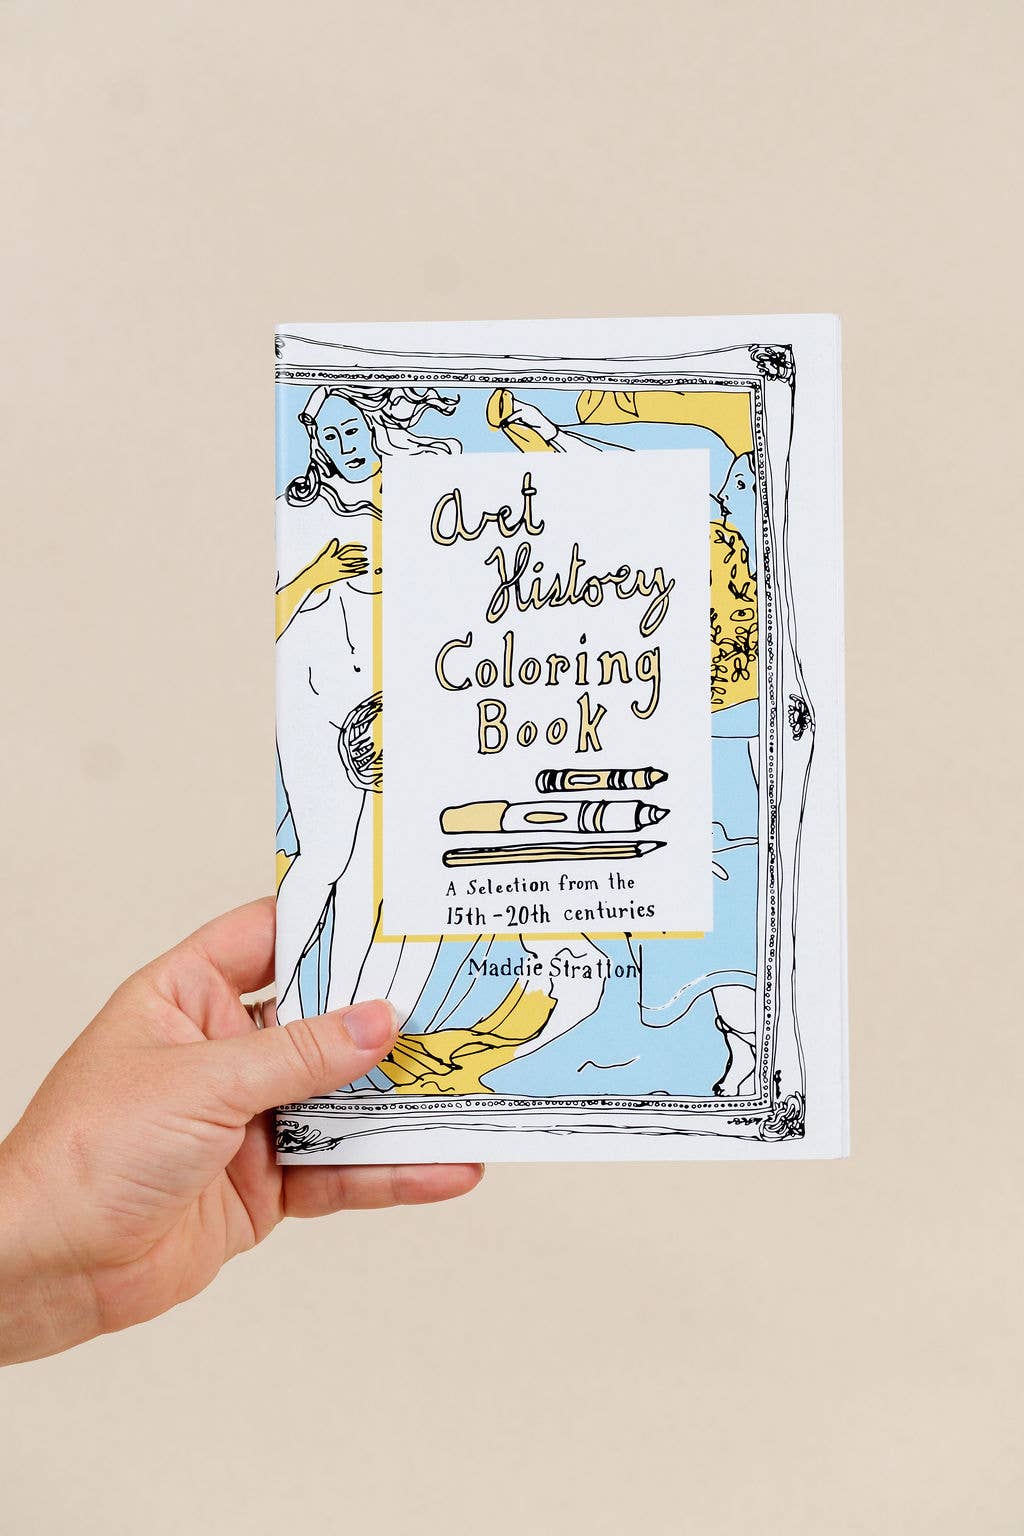 Art
History
Coloring
Book
A Selection from the
15th-20th centuries
Maddie Stratton